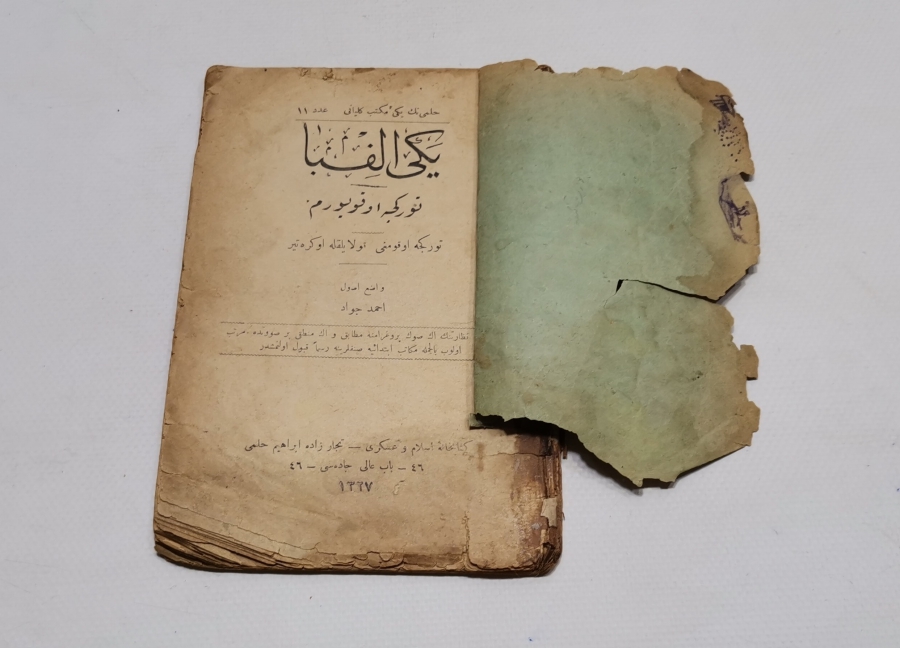 حلمی‌نك یكی مكتب كلیاتی عدد ١١
یكی الفبا
توركجه اوقویورم.
توركجه اوقومغی قولایلقله اوكره‌تیر
واضع اصول
احمد جواد
نظارتنك اك صوك پروغرامنه مطابق و اك منطقی بر صورتده مرتب
اولوب بالجمله مكاتب ابتدائیه صنفلرینه رسماً قبول اولنمشدر
كتابخانهٔ اسلام و عسكری — تجار زاده ابراهیم حلمی
٤٦ — باب عالی جاده‌سی — ٤٦
١٣٢٧